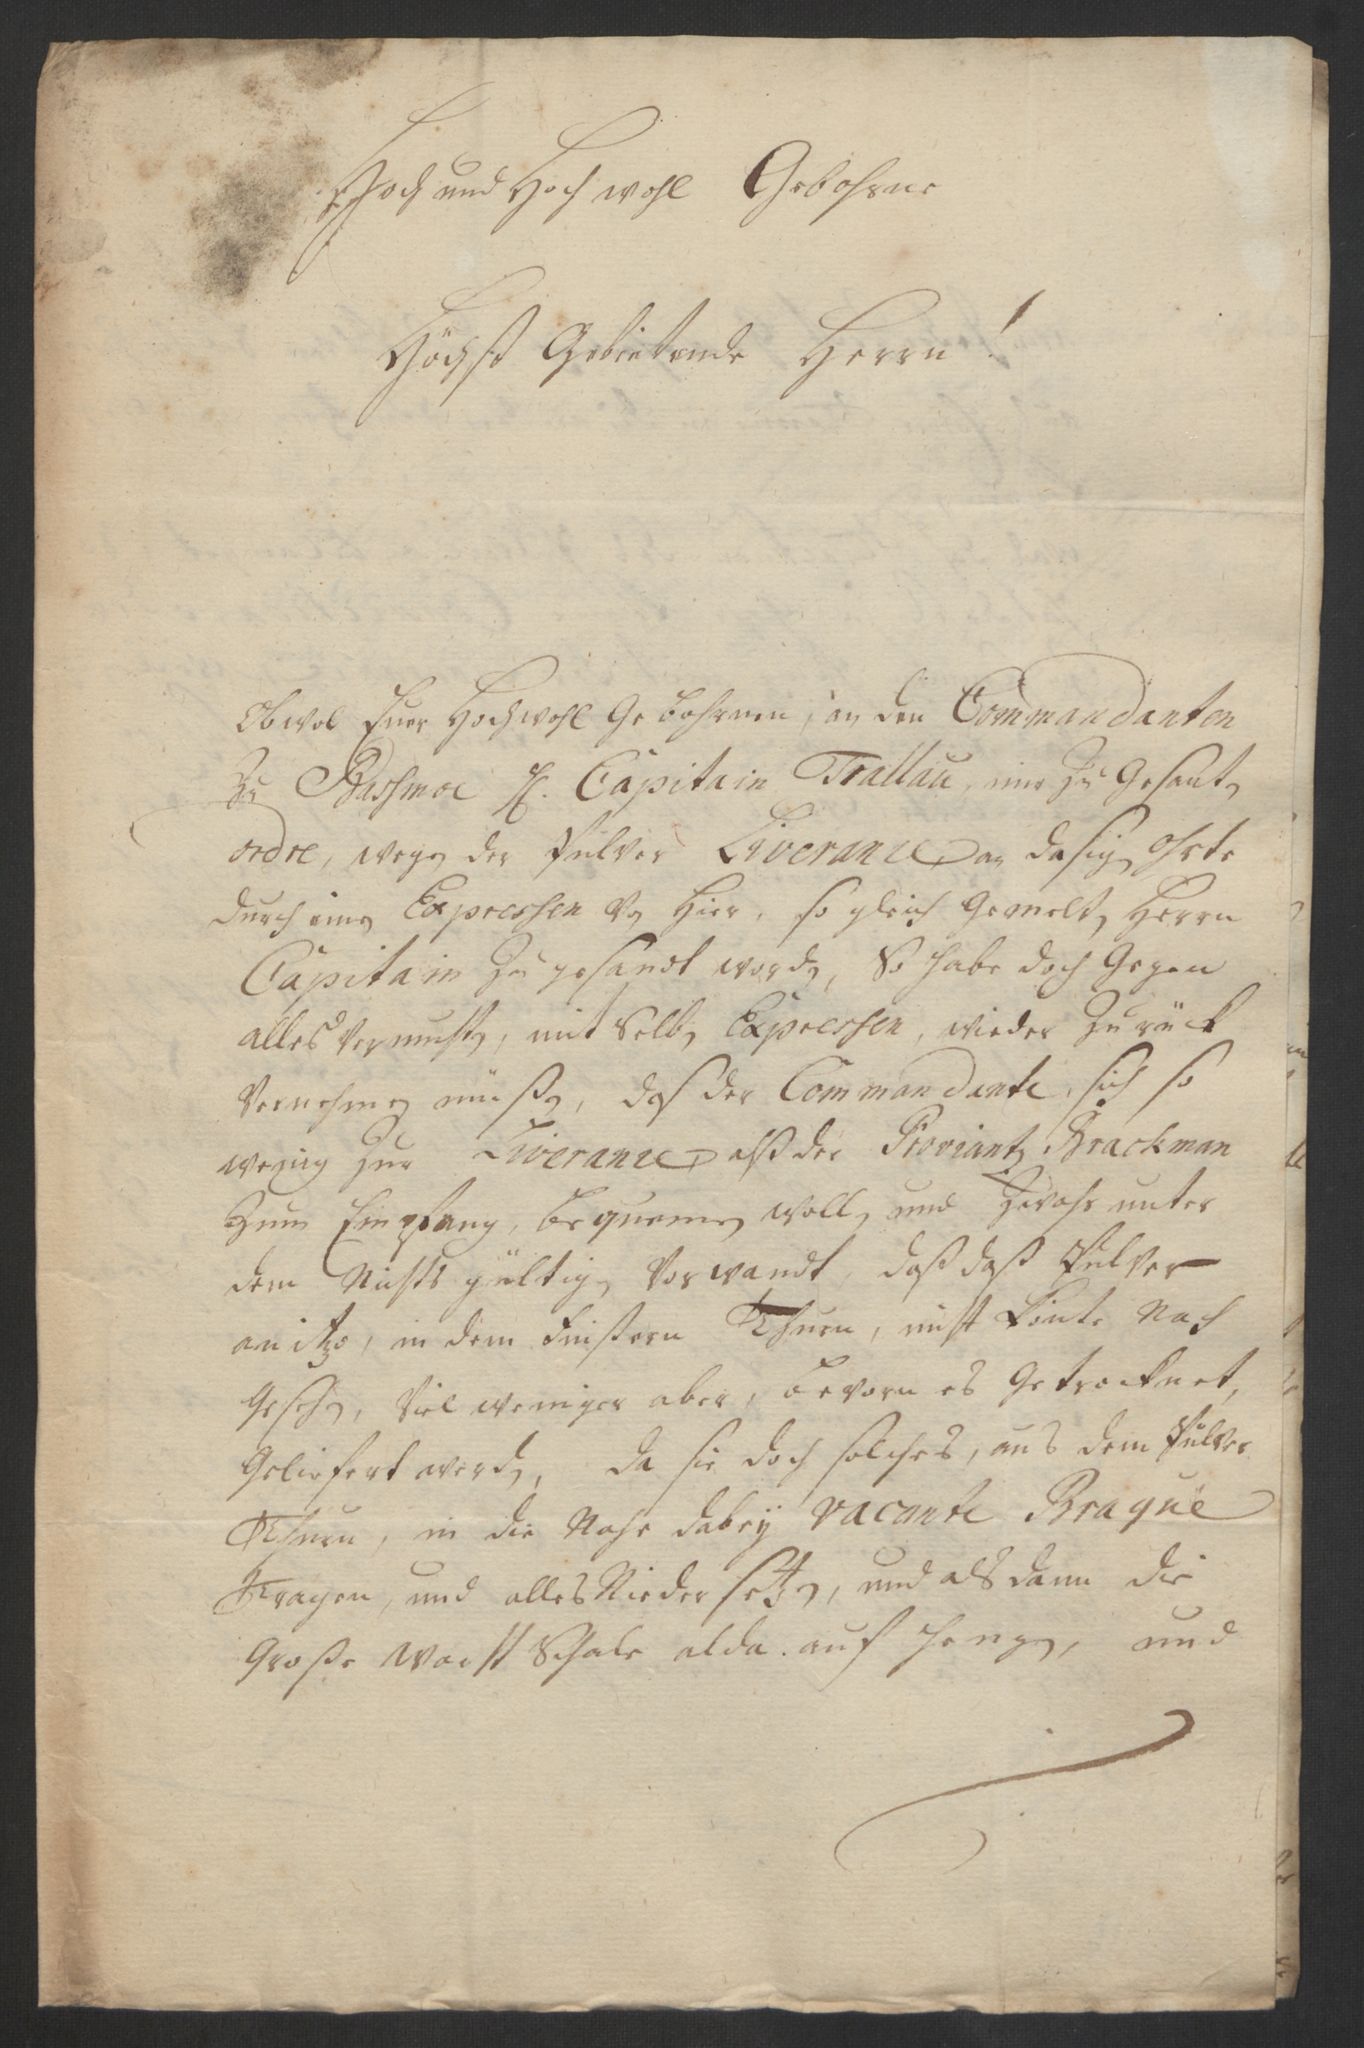 Hoch und Hoch wohl Gebohrne
Höchst Gebietende Herrn!
Obwol Euer Hochwohl Gebohrnen, an den Commandanten
Zu Bassmoe H. Capitain Trallau, eine Zu Gesante
ordre, wegen der Pulver Liverance an dasigen Ohrte
durch einen Expressen von Hier, so gleich Gemelten Herrn
Capitain Zu gesandt worden, So habe doch Gegen
alles Vermuhten, mit Selben Expressen, wieder Zurück
Vernehmen müßen, daß der Commandante, sich so
wenig Zur Liverance alß der Proviantz Brackman
Zum Empfang, bequemen wollen und Zwahr unter
dem Nichts gültigen Vorwandt, daß daß Pulver
anitzo, in dem finstern Thurn, nicht könte Nach
Gesehen, Viel weniger aber, bevorn es Getrocknet,
Geliefert werden, da sie doch solches, aus dem Pulver
Thurn, in die Nahe dabey vacante Braque
Tragen, und alles Nieder setzen, und als dann die
Große Wacht Schale alda auf hengen, und